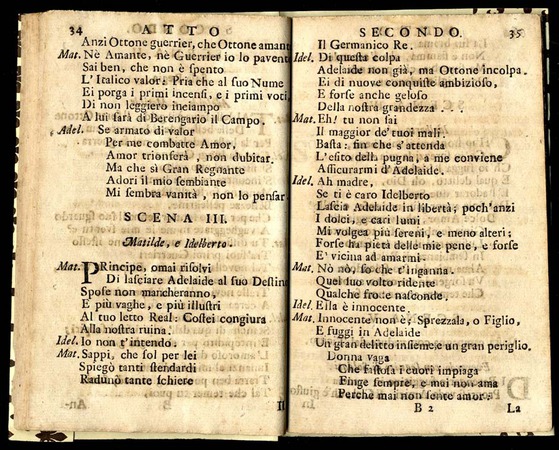 34 ATTO
Anzi Ottone guerrier, che Ottone amante
Mat. Nè Amante, nè Guerrier io lo pavento
Sai ben, che non è spento
L' Italico valor: Pria che al suo Nume
Ei porga i primi incensi, e i primi voti,
Di non leggiero inciampo
A lui sarà di Berengario il Campo.
Adel. Se armato di valor
Per me combatte Amor,
Amor trionferà, non dubitar.
Ma che sì Gran Regnante
Adori il mio sembiante
Mi sembra vanità, non lo pensar.
SCENA III.
Matilde, e Idelberto.
Mat. PRincipe, omai risolvi
Di lasciare Adelaide al suo Destino
Spose non mancheranno,
E più vaghe, e più illustri
Al tuo letto Real: Costei congiura
Alla nostra ruina.
Idel. Io non t'intendo.
Mat. Sappi, che sol per lei
Spiegò tanti stendardi
Radunò tante schiere
Il
SECONDO. 35
Il Germanico Re.
Idel. Di questa colpa
Adelaide non già, ma Ottone incolpa.
Ei di nuove conquiste ambizioso,
E forse anche geloso
Della nostra grandezza . . .
Mat. Eh! tu non sai
Il maggior de' tuoi mali.
Basta: fin che s'attenda
L'esito della pugna, a me conviene
Assicurarmi d'Adelaide.
Idel. Ah madre,
Se ti è caro Idelberto
Lascia Adelaide in libertà; poch'anzi
I dolci, e cari lumi
Mi volgea più sereni, e meno alteri;
Forse ha pietà delle mie pene, e forse
E' vicina ad amarmi.
Mat. Nò nò, so che t'inganna.
Quel suo volto ridente
Qualche frode nasconde.
Idel. Ella è innocente.
Mat. Innocente non è; Sprezzala, o Figlio,
E fuggi in Adelaide
Un gran delitto insieme, e un gran periglio.
Donna vaga
Che fastosa i cuori impiaga
Finge sempre, e mai non ama
Perchè mai non sente amor:
B 2 La